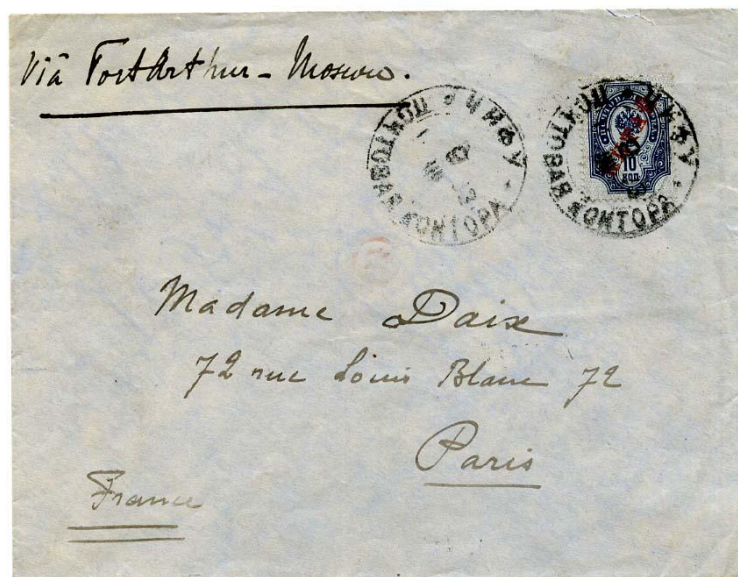 Via Port Arthur - Moscou.
ЧИФУ
ПОЧТОВАЯ КОНТОРА
10
КОП
ЧИФУ
ПОЧТОВАЯ КОНТОРА
Madame Daix
72 rue Louis Blanc 72
Paris
France